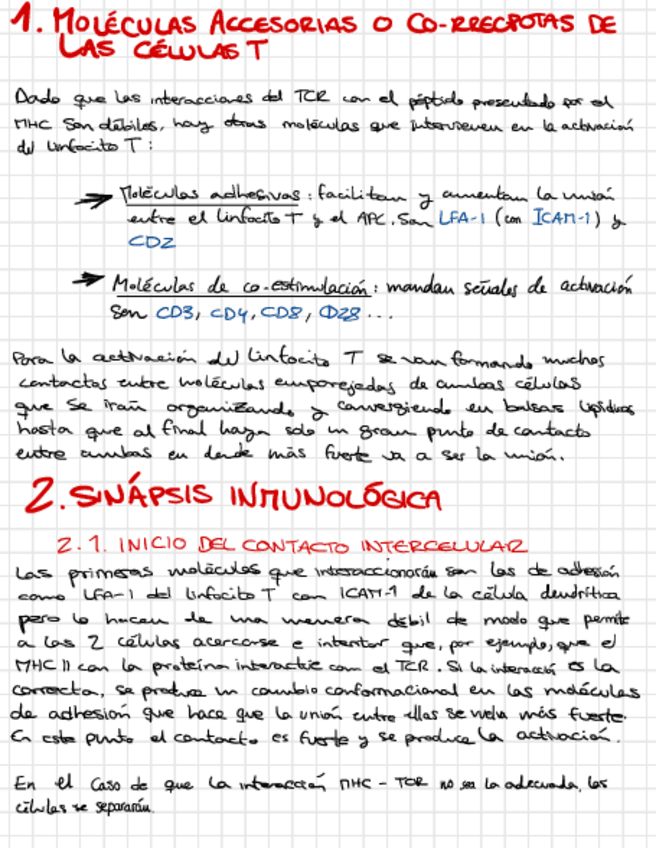 1. MOLÉCULAS ACCESORIAS O CO-RRECPOTAS DE
LAS CÉLULAS T
Dado que las interacciones del TCR con el péptido presentado por el
MHC son débiles, hay otras moléculas que intervienen en la activación
del linfocito T:
→ Moléculas adhesivas: facilitan y aumentan la unión
entre el linfocito T y el APC. Son LFA-1 (con ICAM-1) y
CD2
→ Moléculas de co-estimulación: mandan señales de activación
Son CD3, CD4, CD8, CD28 ...
Para la activación del linfocito T se van formando muchos
contactos entre moléculas emparejadas de ambas células
que se irán organizando y convergiendo en balsas lipídicas
hasta que al final haya solo un gran punto de contacto
entre ambas en donde más fuerte va a ser la unión.
2. SINÁPSIS INMUNOLÓGICA
2.1. INICIO DEL CONTACTO INTERCELULAR
Las primeras moléculas que interaccionarán son las de adhesión
como LFA-1 del linfocito T con ICAM-1 de la célula dendrítica
pero lo hacen de una manera débil de modo que permite
a las 2 células acercarse e intentar que, por ejemplo, que el
MHC II con la proteína interactúe con el TCR. Si la interacción es la
correcta, se produce un cambio conformacional en las moléculas
de adhesión que hace que la unión entre ellas se vuelva más fuerte.
En este punto el contacto es fuerte y se produce la activación.
En el caso de que la interacción MHC - TCR no sea la adecuada, las
células se separarán.